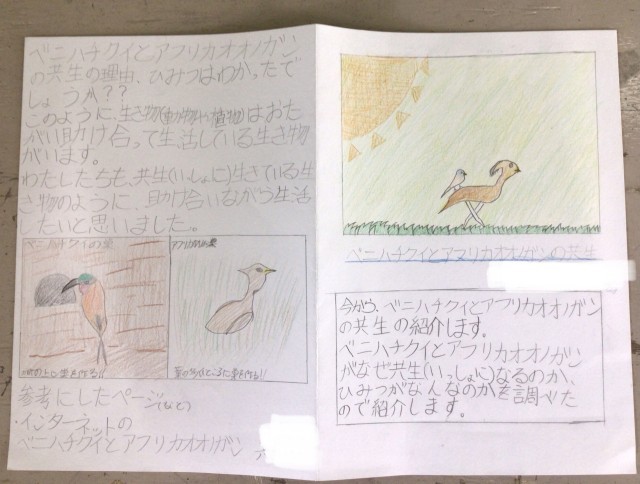 ベニハチクイとアフリカオオノガン
の共生の理由、ひみつはわかったで
しょうか??
このように、生き物(動物や植物)はおた
がい助け合って生活している生き物
がいます。
わたしたちも、共生(いっしょに)生きている生
き物のように、助け合いながら生活
したいと思いました。
ベニハチクイの巣
アフリカオオノガンの巣
草の多いところに巣を作る!!
参考にしたページ(など)
・インターネットの
ベニハチクイとアフリカオオノガン
ベニハチクイとアフリカオオノガンの共生
今から、ベニハチクイとアフリカオオノガン
の共生の紹介します。
ベニハチクイとアフリカオオノガン
がなぜ共生(いっしょに)なるのか、
ひみつがなんなのかを調べた
ので紹介します。